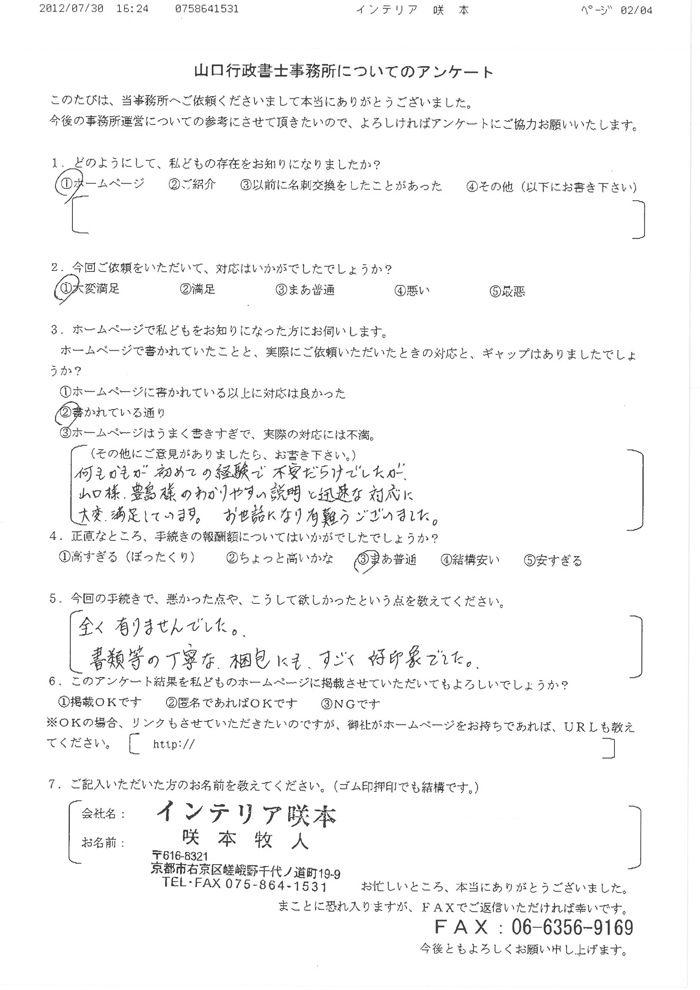 2012/07/30 16:24 0758641531 インテリア 咲 本 ページ 02/04
山口行政書士事務所についてのアンケート
このたびは、当事務所へご依頼くださいまして本当にありがとうございました。
今後の事務所運営についての参考にさせて頂きたいので、よろしければアンケートにご協力お願いいたします。
1．どのようにして、私どもの存在をお知りになりましたか？
①ホームページ ②ご紹介 ③以前に名刺交換をしたことがあった ④その他（以下にお書き下さい）
2．今回ご依頼をいただいて、対応はいかがでしたでしょうか？
①大変満足 ②満足 ③まあ普通 ④悪い ⑤最悪
3．ホームページで私どもをお知りになった方にお伺いします。
ホームページで書かれていたことと、実際にご依頼いただいたときの対応と、ギャップはありましたでしょ
うか？
①ホームページに書かれている以上に対応は良かった
②書かれている通り
③ホームページはうまく書きすぎで、実際の対応には不満。
（その他にご意見がありましたら、お書き下さい。）
何もかもが 初めての経験で 不安だらけでしたが、
山口様、豊島様のわかりやすい説明と迅速な対応に
大変、満足しています。 お世話になり有難うございました。
4．正直なところ、手続きの報酬額についてはいかがでしたでしょうか？
①高すぎる（ぼったくり） ②ちょっと高いかな ③まあ普通 ④結構安い ⑤安すぎる
5．今回の手続きで、悪かった点や、こうして欲しかったという点を教えてください。
全く 有りませんでした。
書類等の丁寧な 梱包にも、すごく 好印象でした。
6．このアンケート結果を私どものホームページに掲載させていただいてもよろしいでしょうか？
①掲載OKです ②匿名であればOKです ③NGです
※OKの場合、リンクもさせていただきたいのですが、御社がホームページをお持ちであれば、URLも教え
てください。 http://
7．ご記入いただいた方のお名前を教えてください。（ゴム印押印でも結構です。）
会社名： インテリア咲本
お名前： 咲 本 牧 人
〒616-8321
京都市右京区嵯峨野千代ノ道町19-9
TEL・FAX 075-864-1531
お忙しいところ、本当にありがとうございました。
まことに恐れ入りますが、FAXでご返信いただければ幸いです。
FAX：06-6356-9169
今後ともよろしくお願い申し上げます。